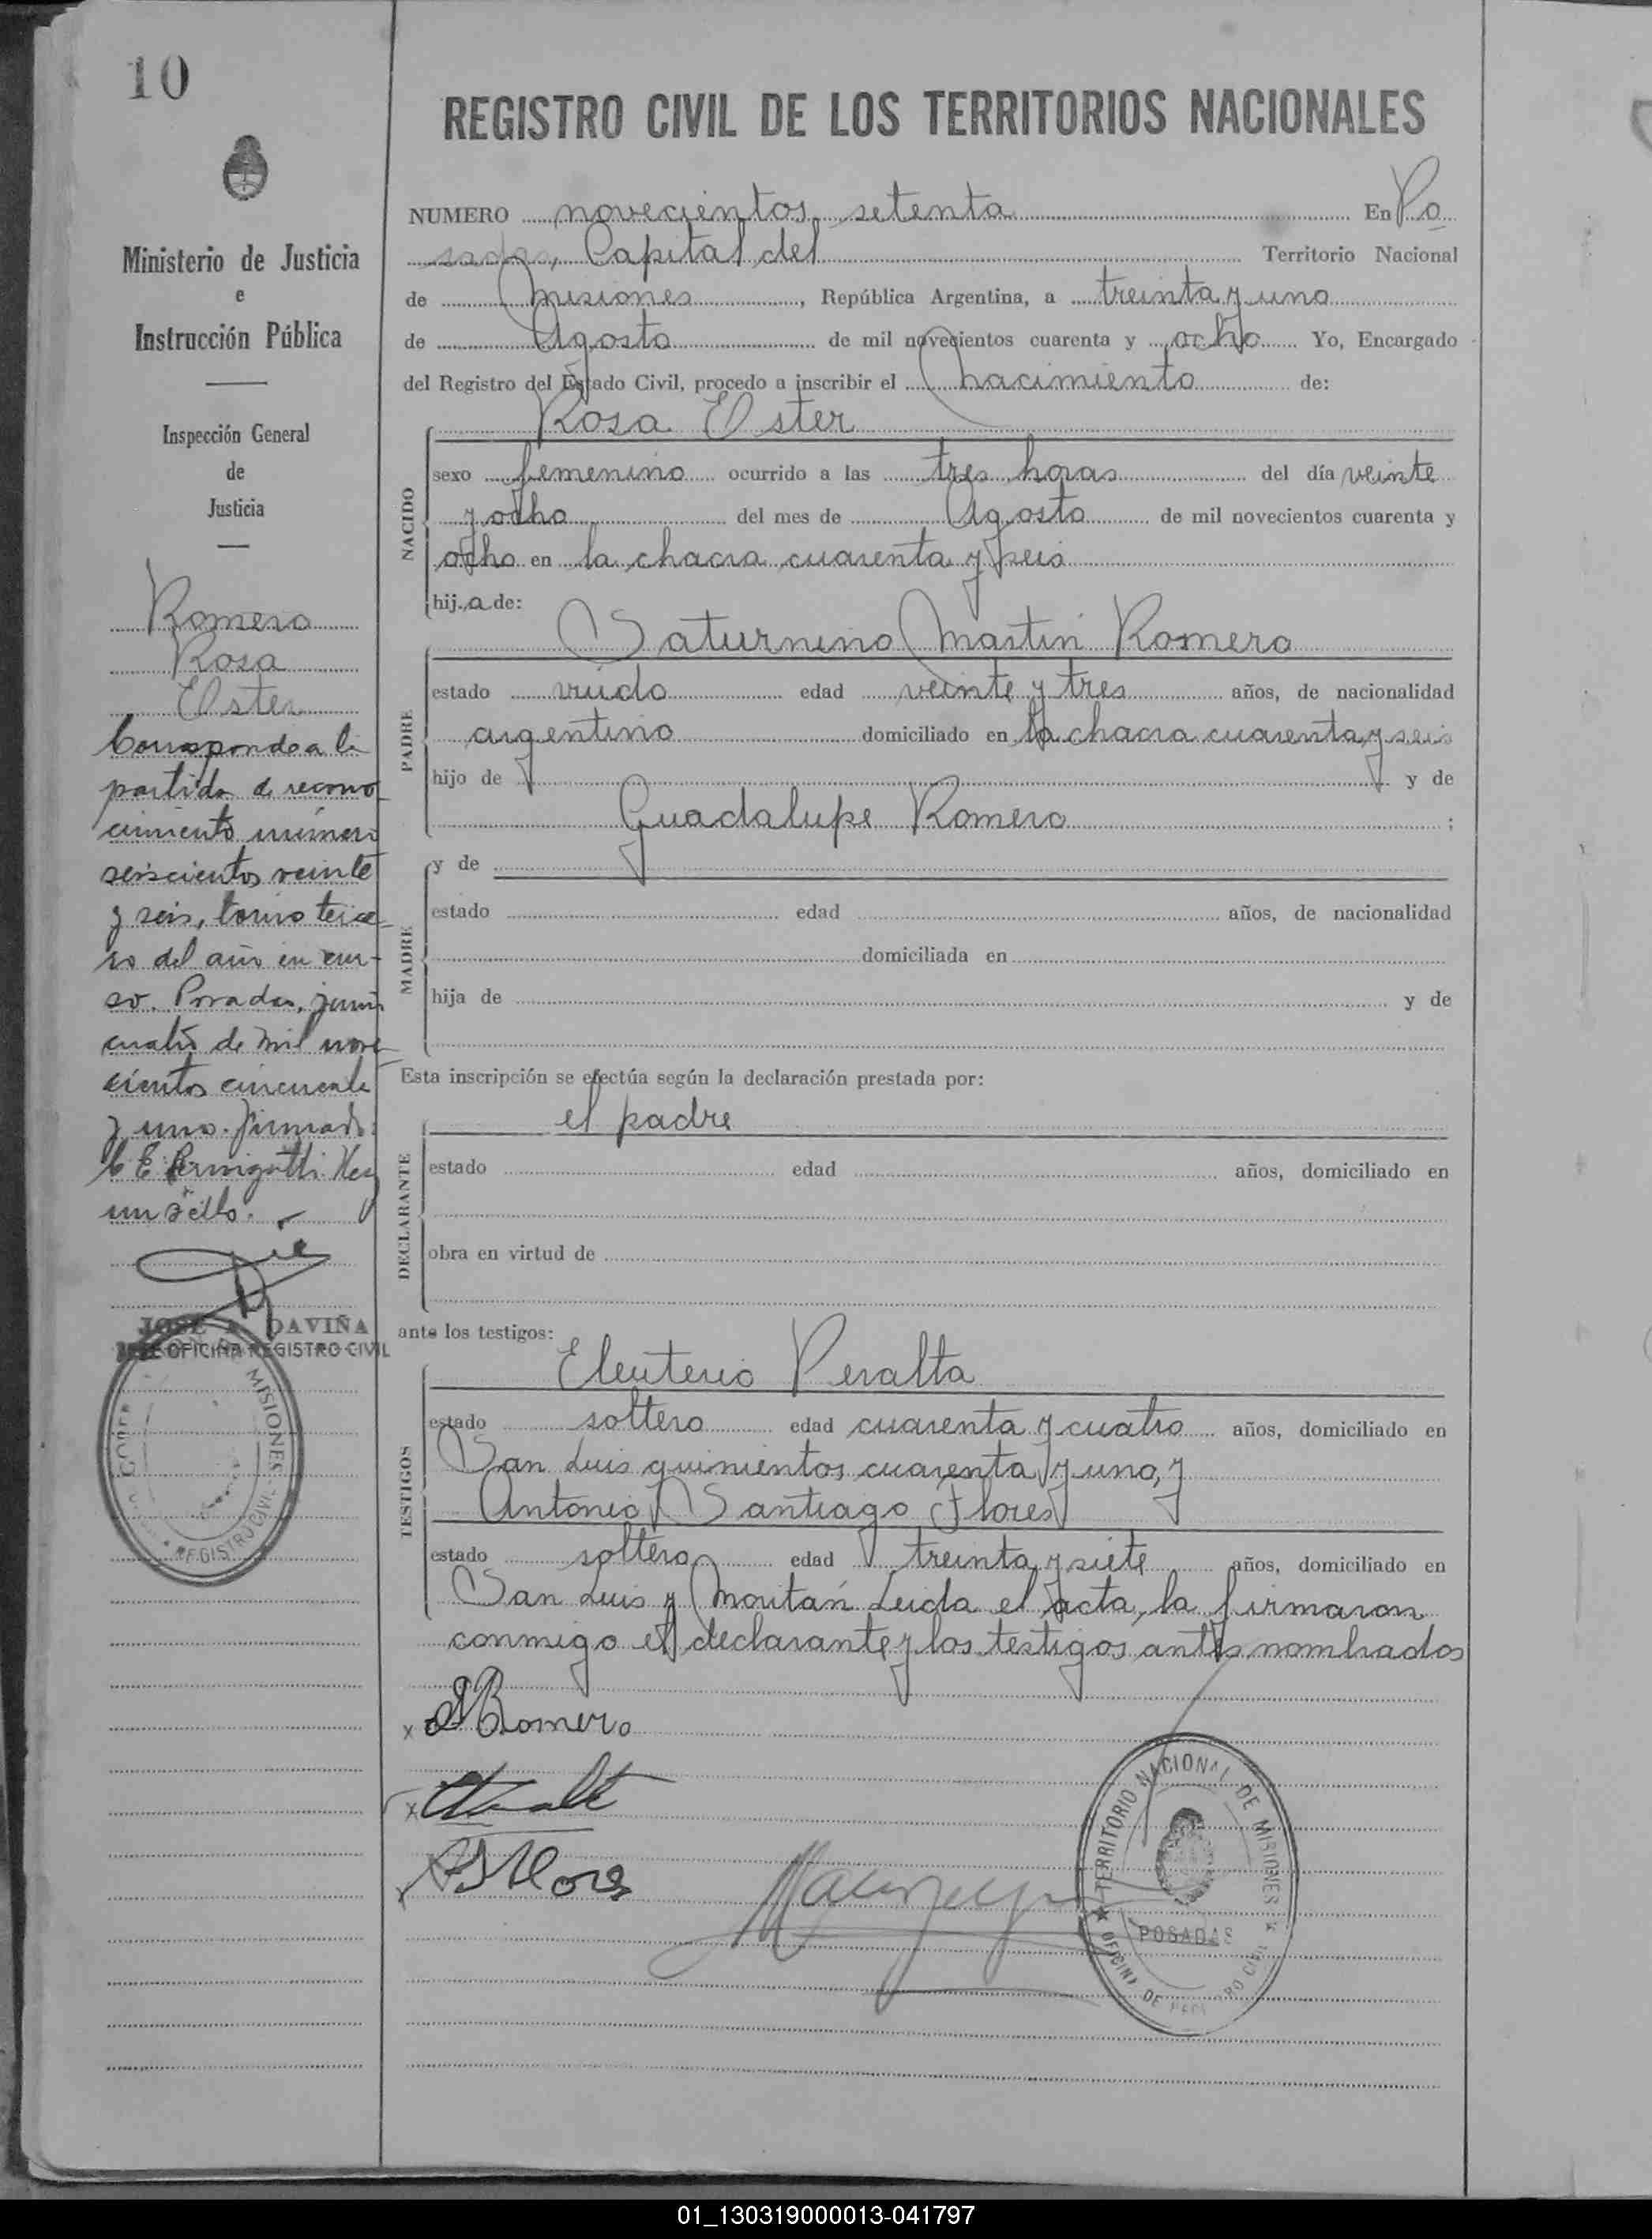 10
Ministerio de Justicia
e
Instrucción Pública
Inspección General
de
Justicia
Romero
Rosa
Ester
Corresponde a la
partida de recono
cimiento número
seiscientos veinte
y seis, tomo terce
ro del año en cur-
so. Posadas, junio
cuatro de mil nove
cientos cincuenta
y uno. Firmado:
C E Hay
un sello.
JOSE A. DAVIÑA
JEFE OFICINA REGISTRO CIVIL
MISIONES
REGISTRO CIVIL
REGISTRO CIVIL DE LOS TERRITORIOS NACIONALES
NUMERO novecientos setenta En Po
sadas, Capital del Territorio Nacional
de Misiones, República Argentina, a treinta y uno
de Agosto de mil novecientos cuarenta y ocho Yo, Encargado
del Registro del Estado Civil, procedo a inscribir el nacimiento de:
NACIDO
Rosa Ester
sexo femenino ocurrido a las tres horas del día veinte
y ocho del mes de Agosto de mil novecientos cuarenta y
ocho en la chacra cuarenta y seis
hija de:
PADRE
Saturnino Martin Romero
estado viudo edad veinte y tres años, de nacionalidad
argentino domiciliado en la chacra cuarenta y seis
hijo de y de
Guadalupe Romero ;
MADRE
y de
estado edad años, de nacionalidad
domiciliada en
hija de y de
Esta inscripción se efectúa según la declaración prestada por:
DECLARANTE
el padre
estado edad años, domiciliado en
obra en virtud de
ante los testigos:
TESTIGOS
Eleuterio Peralta
estado soltero edad cuarenta y cuatro años, domiciliado en
San Luis quinientos cuarenta y uno, y
Antonio Santiago Flores
estado soltero edad treinta y siete años, domiciliado en
San Luis y Moritán Leida el acta, la firmaron
conmigo el declarante y los testigos antes nombrados
x S Romero
x
x A S Flores
TERRITORIO NACIONAL DE MISIONES
POSADAS
OFICINA DE REGISTRO CIVIL
01_130319000013-041797